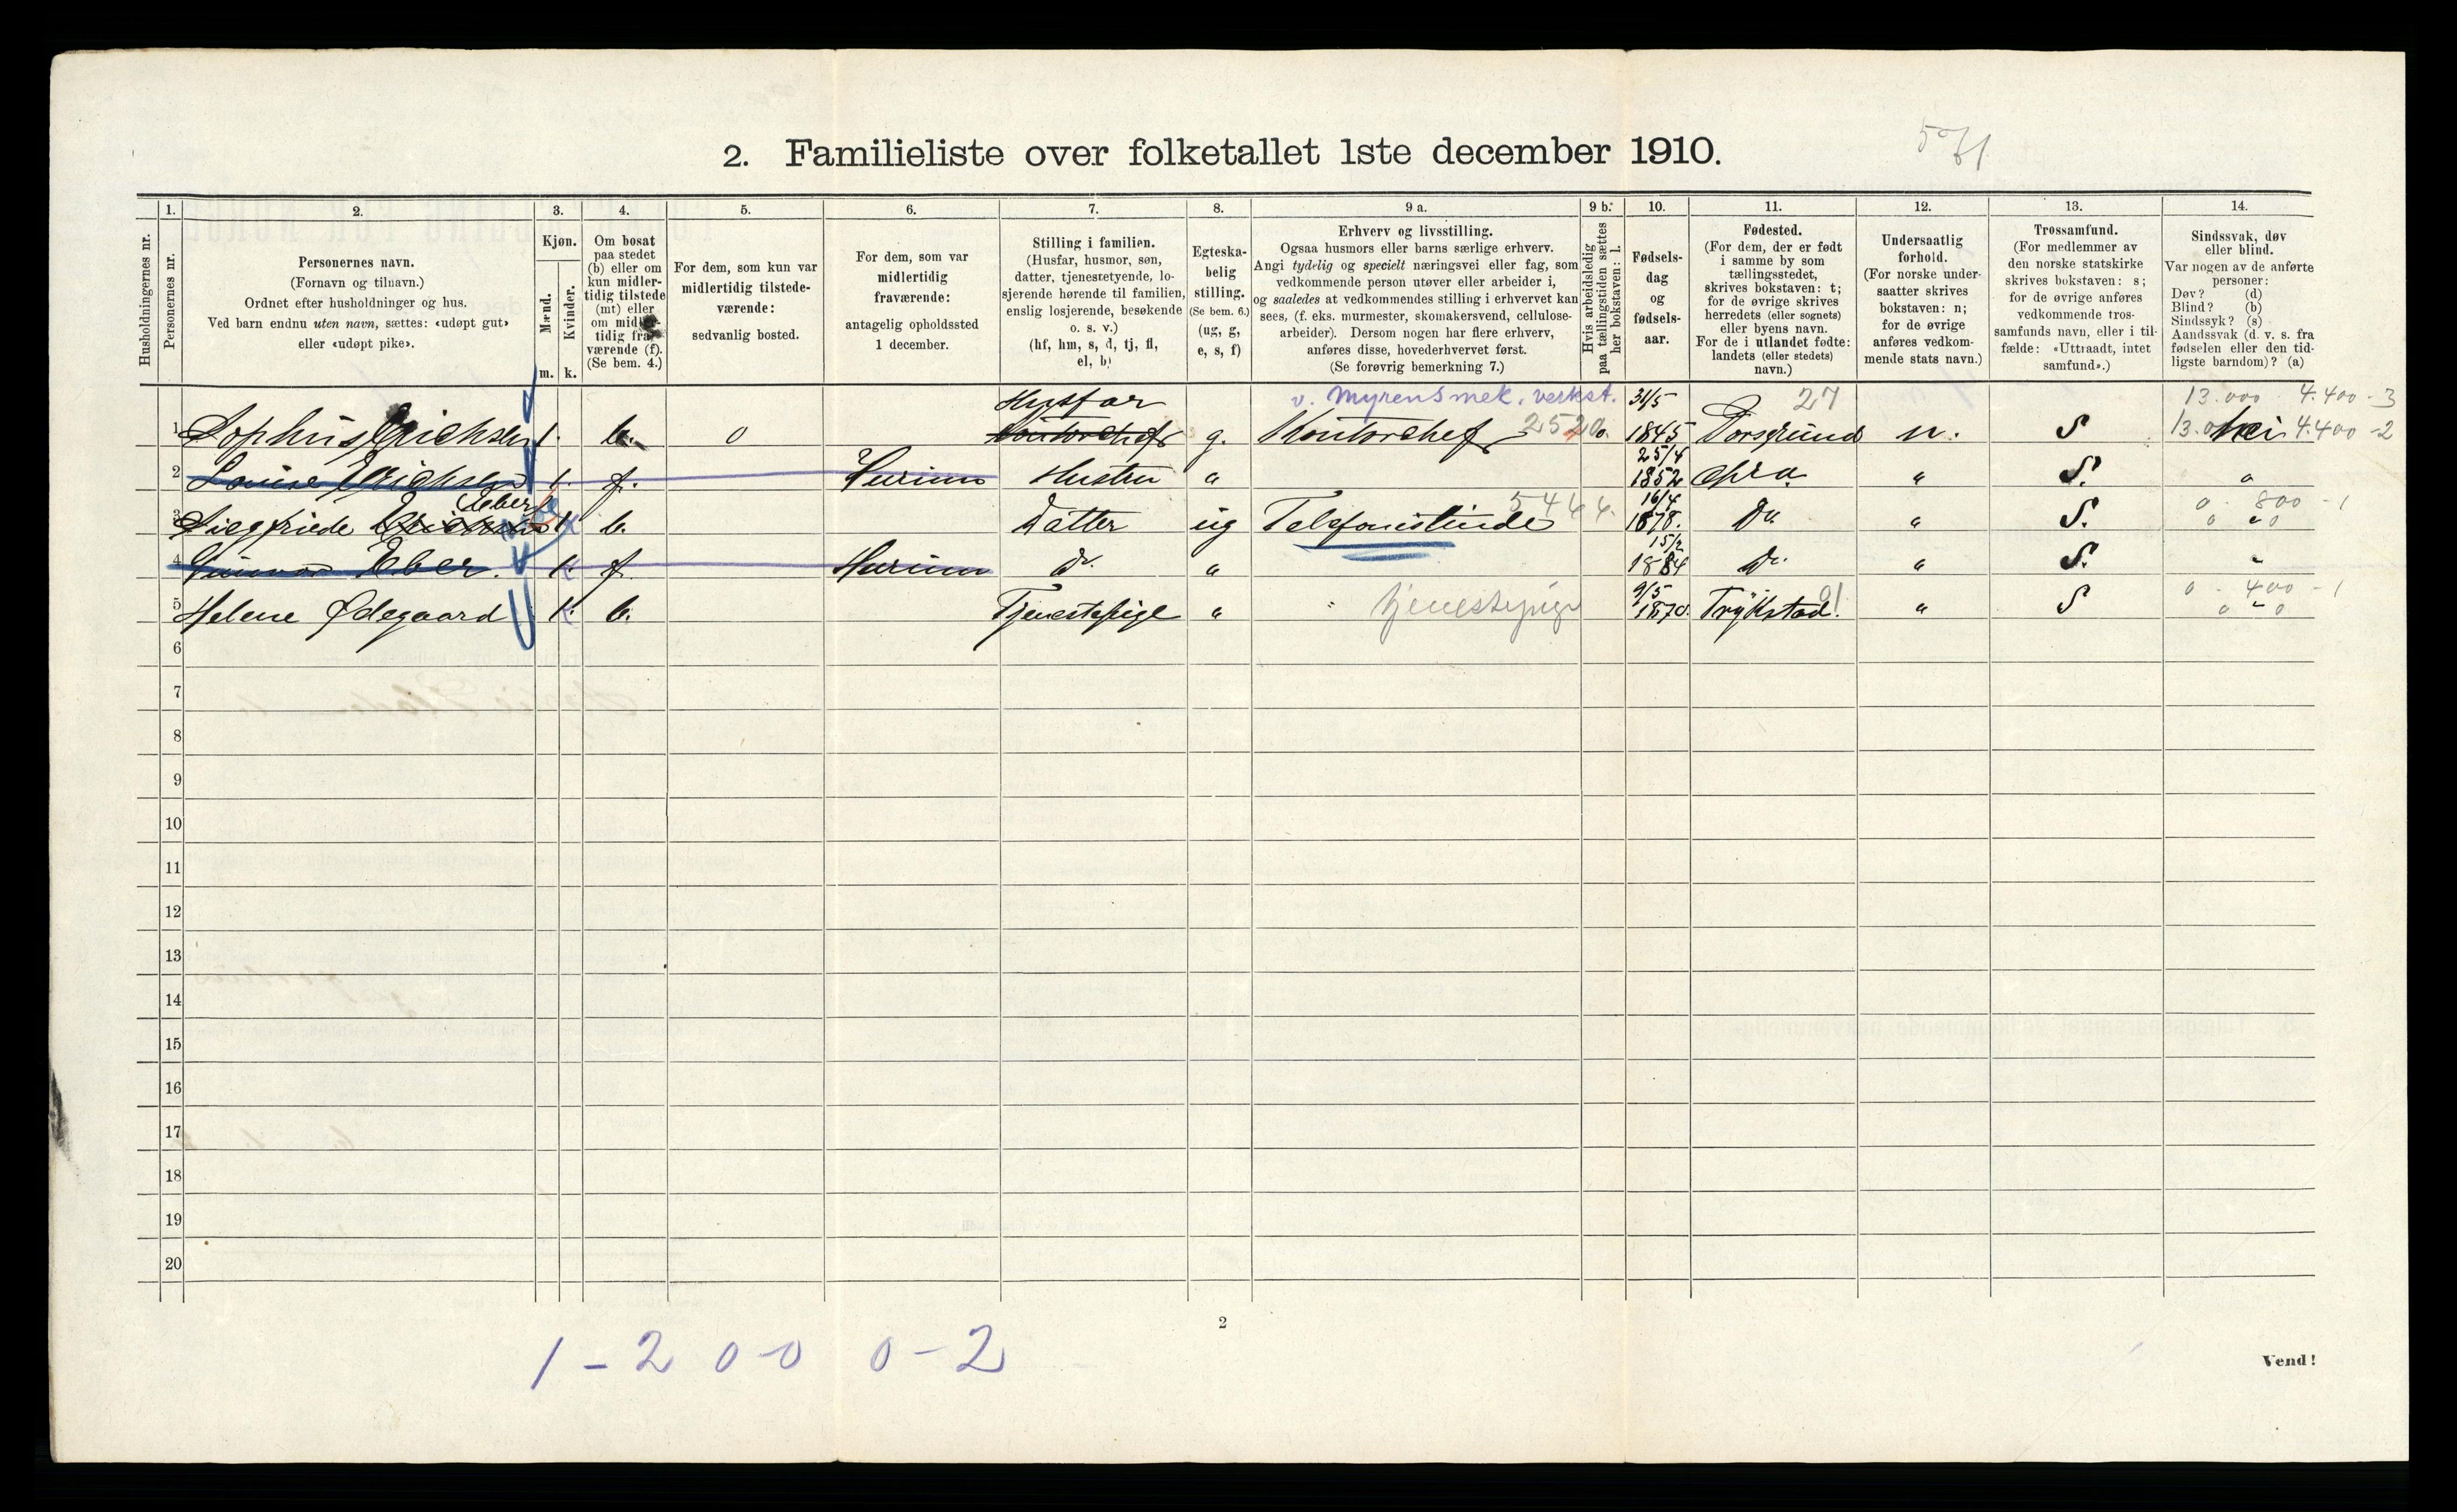 2. Familieliste over folketallet 1ste december 1910.
Husholdningernes nr.
1.
Personernes nr.
2.
Personernes navn.
(Fornavn og tilnavn.)
Ordnet efter husholdninger og hus.
Ved barn endnu uten navn, sættes: «udøpt gut»
eller «udøpt pike».
3.
Kjøn.
Mænd.
Kvinder.
m.
k.
4.
Om bosat
paa stedet
(b) eller om
kun midler-
tidig tilstede
(mt) eller
om midler-
tidig fra-
værende (f).
(Se bem. 4.)
5.
For dem, som kun var
midlertidig tilstede-
værende:
sedvanlig bosted.
6.
For dem, som var
midlertidig
fraværende:
antagelig opholdssted
1 december.
7.
Stilling i familien.
(Husfar, husmor, søn,
datter, tjenestetyende, lo-
sjerende hørende til familien,
enslig losjerende, besøkende
o. s. v.)
(hf, hm, s, d, tj, fl,
el, b)
8.
Egteska-
belig
stilling.
(Se bem. 6.)
(ug, g,
e, s, f)
9 a.
Erhverv og livsstilling.
Ogsaa husmors eller barns særlige erhverv.
Angi tydelig og specielt næringsvei eller fag, som
vedkommende person utøver eller arbeider i,
og saaledes at vedkommendes stilling i erhvervet kan
sees, (f. eks. murmester, skomakersvend, cellulose-
arbeider). Dersom nogen har flere erhverv,
anføres disse, hovederhvervet først.
(Se forøvrig bemerkning 7.)
9 b.
Hvis arbeidsledig
paa tællingstiden sættes
her bokstaven: l.
10.
Fødsels-
dag
og
fødsels-
aar.
11.
Fødested.
(For dem, der er født
i samme by som
tællingsstedet,
skrives bokstaven: t;
for de øvrige skrives
herredets (eller sognets)
eller byens navn.
For de i utlandet fødte:
landets (eller stedets)
navn.)
12.
Undersaatlig
forhold.
(For norske under-
saatter skrives
bokstaven: n;
for de øvrige
anføres vedkom-
mende stats navn.)
13.
Trossamfund.
(For medlemmer av
den norske statskirke
skrives bokstaven: s;
for de øvrige anføres
vedkommende tros-
samfunds navn, eller i til-
fælde: «Uttraadt, intet
samfund».)
14.
Sindssvak, døv
eller blind.
Var nogen av de anførte
personer:
Døv? (d)
Blind? (b)
Sindssyk? (s)
Aandssvak (d. v. s. fra
fødselen eller den tid-
ligste barndom)? (a)
Husfar v. Myrens mek. verkst. 31/5 27 13.000 4.400 - 3
1 Sophus Erichsen 1. b. 0 Kontorchef g. Kontorchef 2520 1845 Porsgrund n. S nei 4.400 - 2
2 Louise Erichsen 1. f. Hurum Hustru " 25/4 1852 Chra " S. "
Eber
3 Siegfriede Erichsen 1. b. Datter ug Telefonistinde 544 16/4 1878. Do. " S. 0 800 - 1
4 Gunvor Eber. 1. f. Hurum do. " 15/2 1884 Do. " S. "
5 Helene Ødegaard 1. b. Tjenestepige " tjenestepige 9/5 1870. Trykstad. " S 0 - 400 - 1
6
7
8
9
10
11
12
13
14
15
16
17
18
19
20
2
1 - 2 0 - 0 0 - 2
Vend!